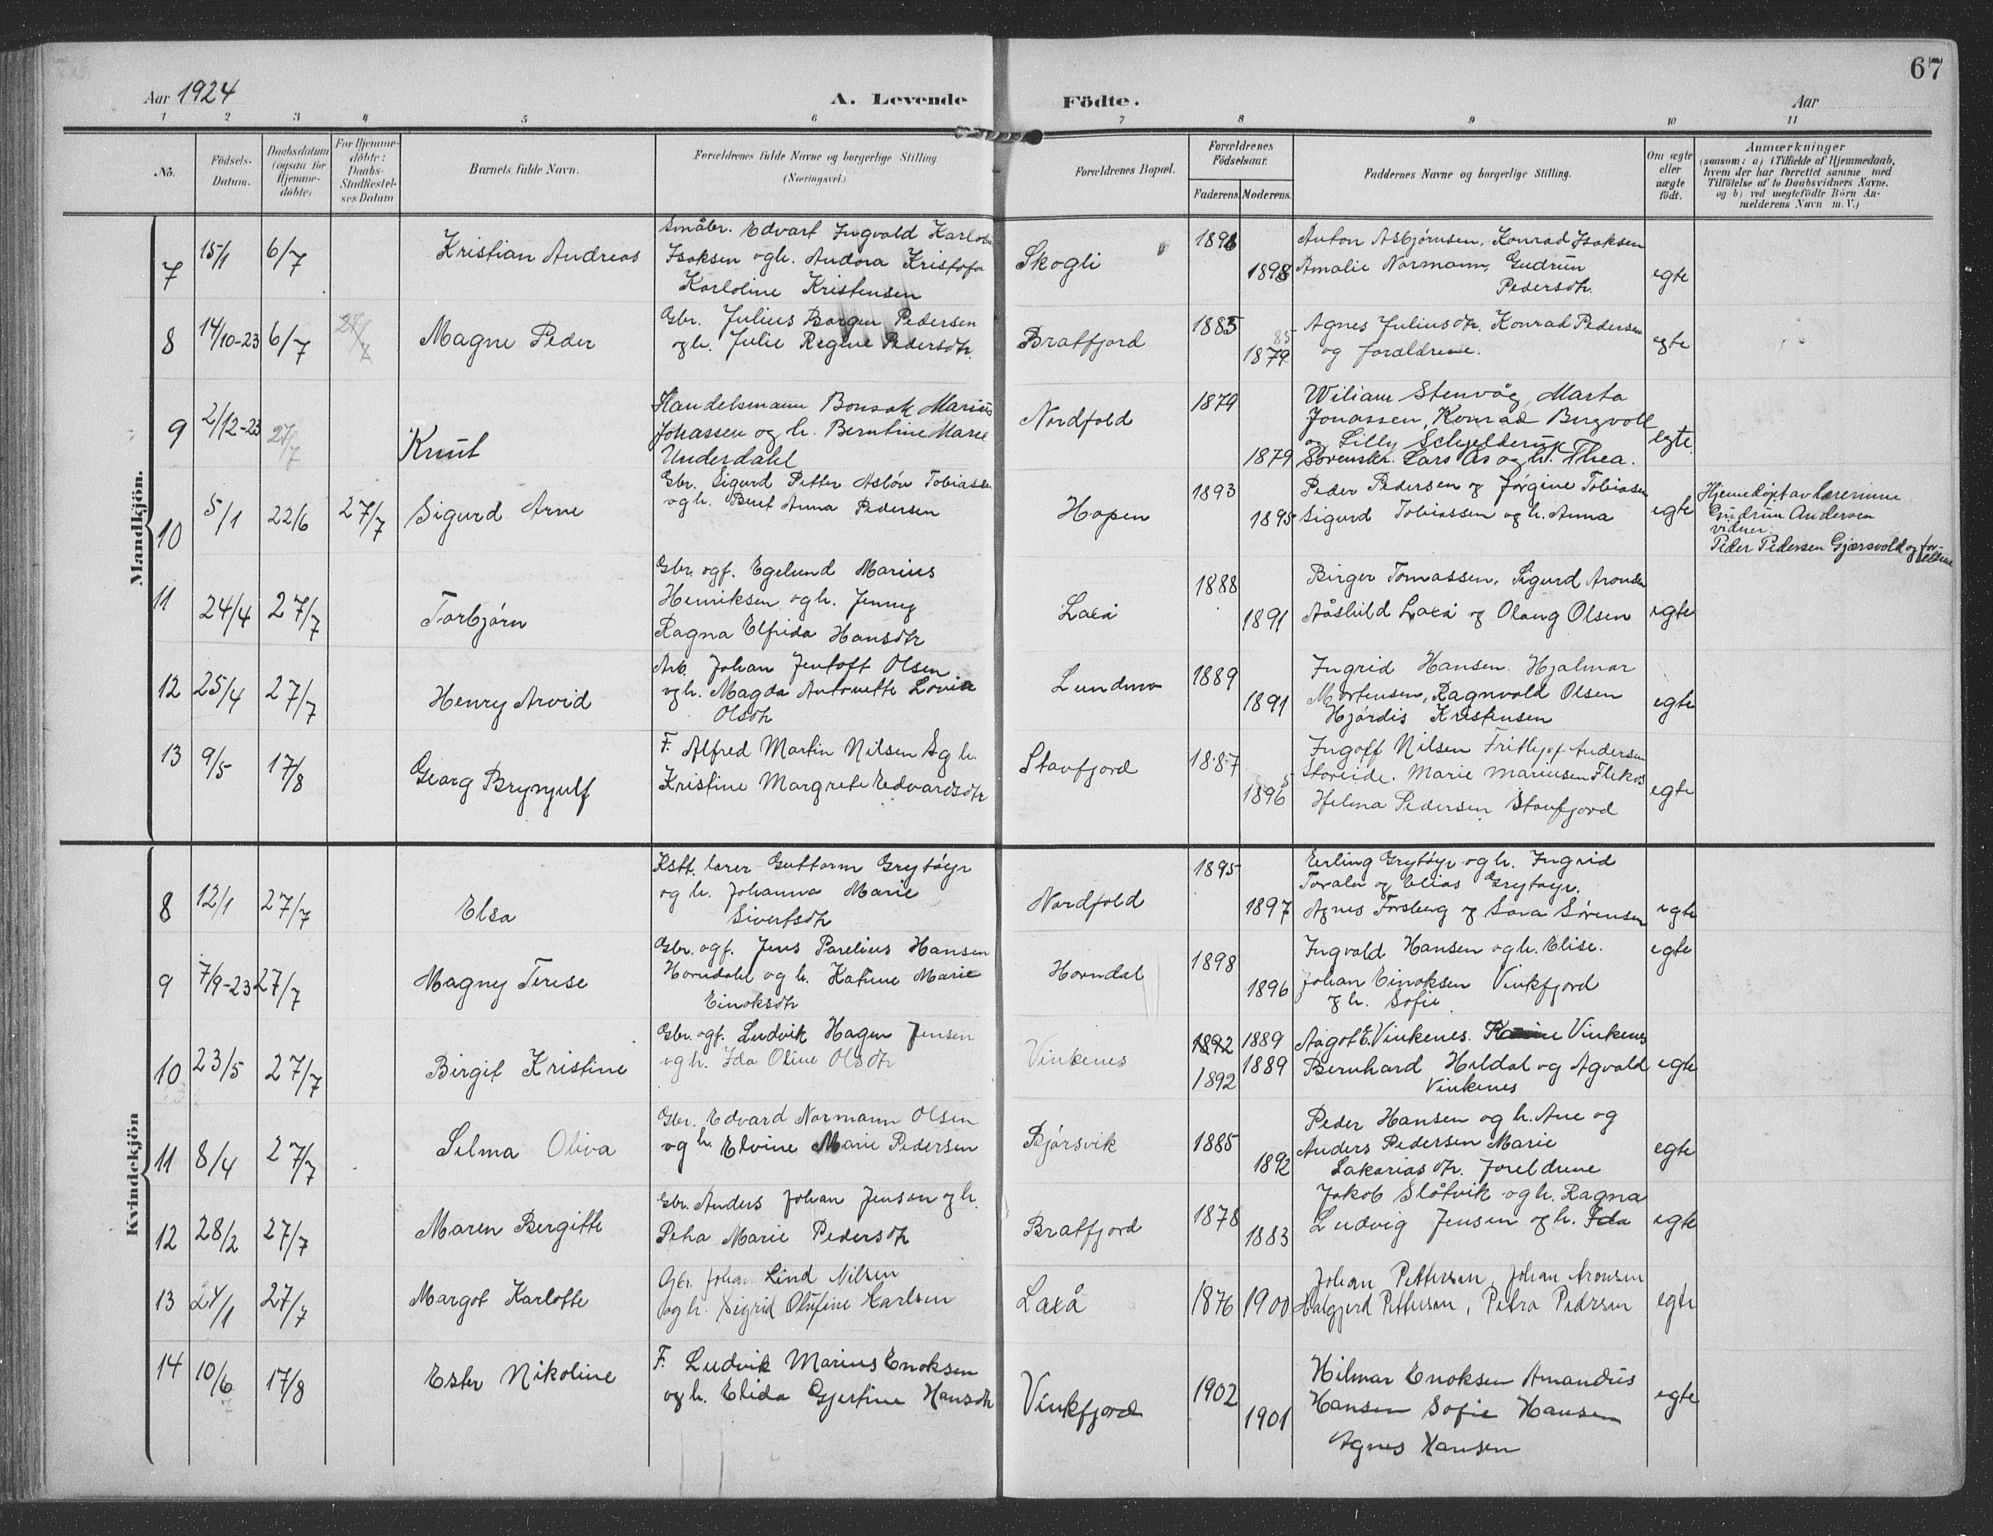 67
Aar 1924
A. Levende Födte.
Aar
1 2 3 4 5 6 7 8 9 10 11
No.
Födsels-Datum.
Daabsdatum (ogsaa for Hjemme-döbte)
For Hjemme-döbte: Daabs-Stadfæstel-ses Datum
Barnets fulde Navn.
Forældrenes fulde Navne og borgerlige Stilling. (Næringsvei.)
Forældrenes Bopæl.
Forældrenes Födselsaar.
Faderens Moderens
Faddernes Navne og borgerlige Stilling.
Om ægte eller uægte født.
Anmærkninger
(saasom: a) i Tilfælde af Hjemmedaab,
hvem der har forrettet samme med
Tilföielse af to Daabsvidners Navne.
og b) ved uægtefödte Börn An-
melderens Navn m. V.)
Mandkjön.
7 15/1 6/7 Kristian Andreas
Småbr. Edvart Ingvald Karlo
Isaksen og h. Andora Kristofa
Karloline Kristensen
Skogli
1898
Anton Asbjørnsen, Konrad Isaksen
Amalie Normann, Gudrun
Pedersdtr.
egte
8 14/10-23 6/7 27/7 Magne Peder
Gbr. Julius Borgen Pedersen
og h. Julie Regine Pedersdtr.
Bratfjord
1885 85 1879
Agnes Juliusdtr. Konrad Pedersen
og foraldrene.
egte
9 2/12-23 27/7 Knut
Handelsmann Bonsak Marius
Johassen og h. Berntine Marie
Underdahl
Nordfold
1879 1879
Wiliam Stenvåg, Marta
Jonassen, Konrad Bergvoll
og Lilly Schjelderup
Sørenskr. Lars Ås og h. Thea.
egte
10 5/1 22/6 27/7 Sigurd Arne
Gbr. Sigurd Petter Asløv Tobiassen
og h. Beret Anna Pedersen
Hopen
1893 1895
Peder Pedersen og Jørgine Tobiasen
Sigurd Tobiassen og h. Anna
egte
Hjemmedøpt av lærerinne
Gudrun Andersen
vidner
Peder Pedersen Gjærsvold og for-
eldrene
11 24/4 27/7 Torbjørn
Gbr. og f. Egelund Marius
Henriksen og h. Jenny
Ragna Elfrida Hansdtr
Laxå
1888 1891
Birger Tomassen, Sigurd Aronsen
Aåshild Laxå og Olaug Olsen
egte
12 25/4 27/7 Henry Arvid
Arb. Johan Jentoft Olsen
og h. Magda Antonette Lovise
Olsdtr
1889 1891
Ingrid Hansen. Hjalmar
Mortensen, Ragnvald Olsen
Hjördis Kristensen
egte
13 9/5 17/8 Georg Brynjulf
F. Alfred Martin Nilsen og h.
Kristine Margrete Edvardsdtr
Stavfjord
1887 1896 5
Ingolf Nilsen Fritjof Andersen
Storeide. Marie Mariusen
Helma Pedersen Stavfjord
egte
Kvindekjön
8 12/1 27/7 Elsa
Kstt. lærer Guttorm Grytøyr
og h. Johanna Marie
Sivertsdtr
Nordfold
1895 1897
Erling Grytøyr og h. Ingrid
og Elias Grytøyr.
Agnes Forsberg og Sara Sørensen
egte
9 7/9-23 27/7 Magny Terese
Gbr. og f. Jens Parelius Hansen
Horndahl og h. Katrine Marie
Einoksdtr
Horndal
1898 1896
Ingvald Hansen og h. Elise.
Johan Einoksen Vinkfjord
og h. Sofie
egte
10 23/5 27/7 Birgit Kristine
Gbr. og f. Ludvik Hagen Jensen
og h. Ida Oline Olsdtr
Vinkenes
1892 1889
1892 1889
Aagot E. Vinkenes. Vinkenes
Bernhard Hildal og Agvald
Vinkenes
egte
11 8/4 27/7 Selma Oliva
Gbr. Edvard Normann Olsen
og h. Elvine Marie Pedersen
Bjørsvik
1885 1892
Peder Hansen og h. Ane og
Anders Pedersen Marie
Sakariasdtr. foreldrene
egte
12 28/2 27/7 Maren Bergitte
Gbr. Anders Johan Jensen og h.
Marie Pedersdtr
Bratfjord
1878 1883
Jakob Slåtvik og h. Ragna
Ludvig Jensen og h. Ida
egte
13 24/1 27/7 Margot Karlotte
Gbr. Johan Lind Nilsen
og h. Sigrid Olufine Karlsen
Laxå
1876 1900
Johan Pettersen, Johan Aronsen
Halgjerd Pettersen, Petra Pedersen
egte
14 10/6 7 17/8 Ester Nikoline
F. Ludvik Marius Enoksen
og h. Elida Gjertine Hansdtr
Vinkfjord
1902 1901
Hilmar Enoksen Amandus
Hansen Sofie Hansen
Agnes Hansen
egte